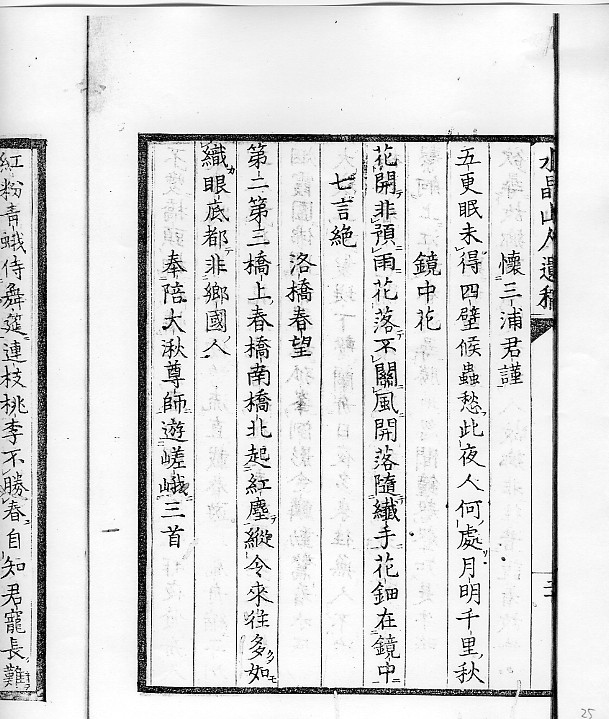 水晶山人遺稿
懷三浦君謹
五更眠未得四壁候蟲愁此夜人何處月明千里秋
鏡中花
花開非預雨花落不關風開落隨纖手花鈿在鏡中
七言絶
洛橋春望
第二第三橋上春橋南橋北起紅塵縱令來往多如
織眼底都非鄉國人
奉陪大湫尊師遊嵯峨三首
紅粉青蛾侍舞筵連枝桃李不勝春自知君寵長難
25